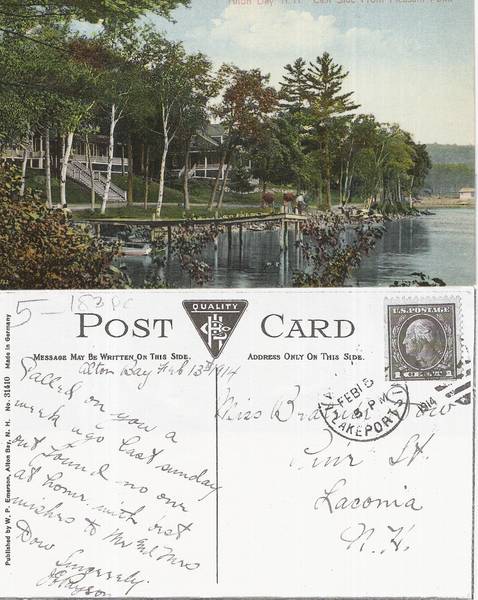 Alton Bay, N.H. East Side From Pleasant Point
5-183 PC
QUALITY
POST CARD
MESSAGE MAY BE WRITTEN ON THIS SIDE.
ADDRESS ONLY ON THIS SIDE.
Published by W. P. Emerson, Alton Bay, N. H. No. 31410 Made in Germany
Alton Bay Feb 13th 1914
Called on you a
week ago last sunday
but found no one
at home with best
wishes to Mr and Mrs
Dow
Sincerely.
U.S. POSTAGE
1 CENT 1
LAKEPORT
FEB 13
PM
1914
Miss Dow
St.
Laconia
N.H.